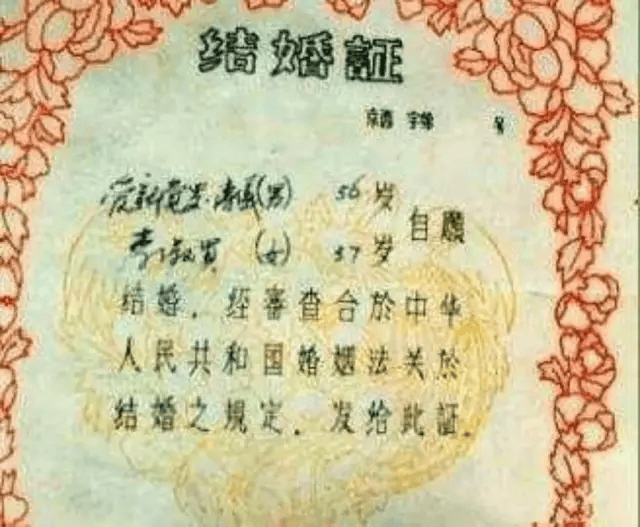 结婚证
京西 字第 号
爱新觉罗·溥儀(男) 56 岁
李淑贤 (女) 37 岁
自願
结婚．经審查合於中华
人民共和国婚姻法关於
结婚之規定．发给此证．